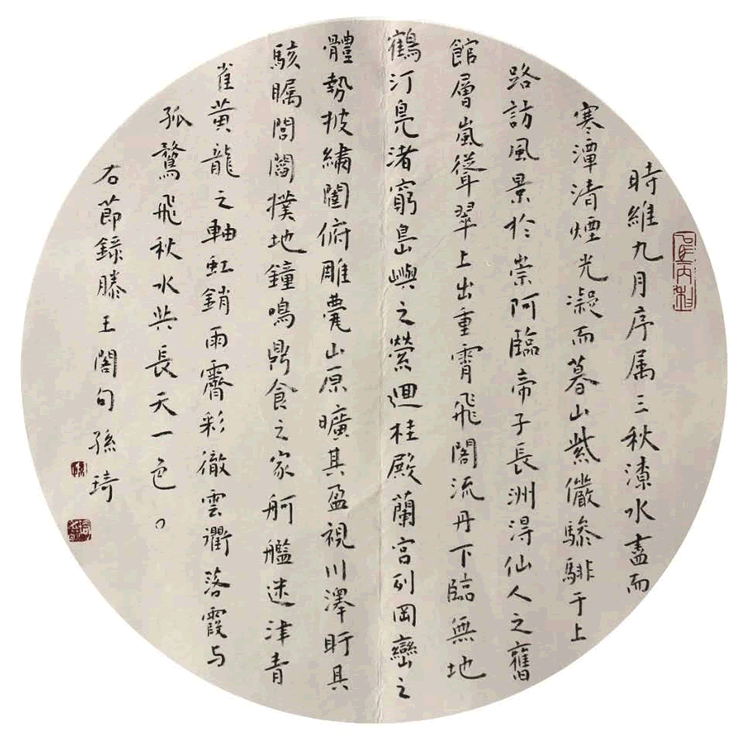 時維九月序属三秋潦水盡而
寒潭清煙光凝而暮山紫儼驂騑于上
路訪風景於崇阿臨帝子長洲得仙人之舊
館層嵐聳翠上出重霄飛閣流丹下臨無地
鶴汀鳧渚窮島嶼之縈迴桂殿蘭宮列岡巒之
體勢披繡闥俯雕甍山原曠其盈視川澤盱其
駭矚閭閻撲地鐘鳴鼎食之家舸艦迷津青
雀黃龍之軸虹銷雨霽彩徹雲衢落霞与
孤鶩飛秋水共長天一色。
右節錄滕王閣句孫琦